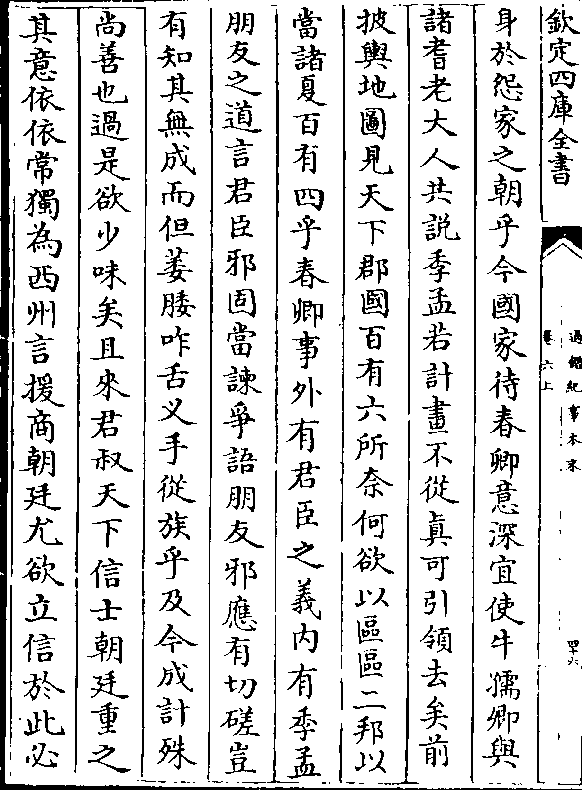 欽定四庫全書
通鑑紀事本末
卷六上
四十六
身於怨家之朝乎今國家待春卿意深宜使牛孺卿與
諸耆老大人共説季孟若計畫不從真可引領去矣前
披輿地圖見天下郡國百有六所奈何欲以區區二邦以
當諸夏百有四乎春卿事外有君臣之義内有季孟
朋友之道言君臣邪固當諫爭語朋友邪應有切磋豈
有知其無成而但萎腇咋舌义手從族乎及今成計殊
尚善也過是欲少味矣且來君叔天下信士朝廷重之
其意依依常獨為西州言援商朝廷尤欲立信於此必